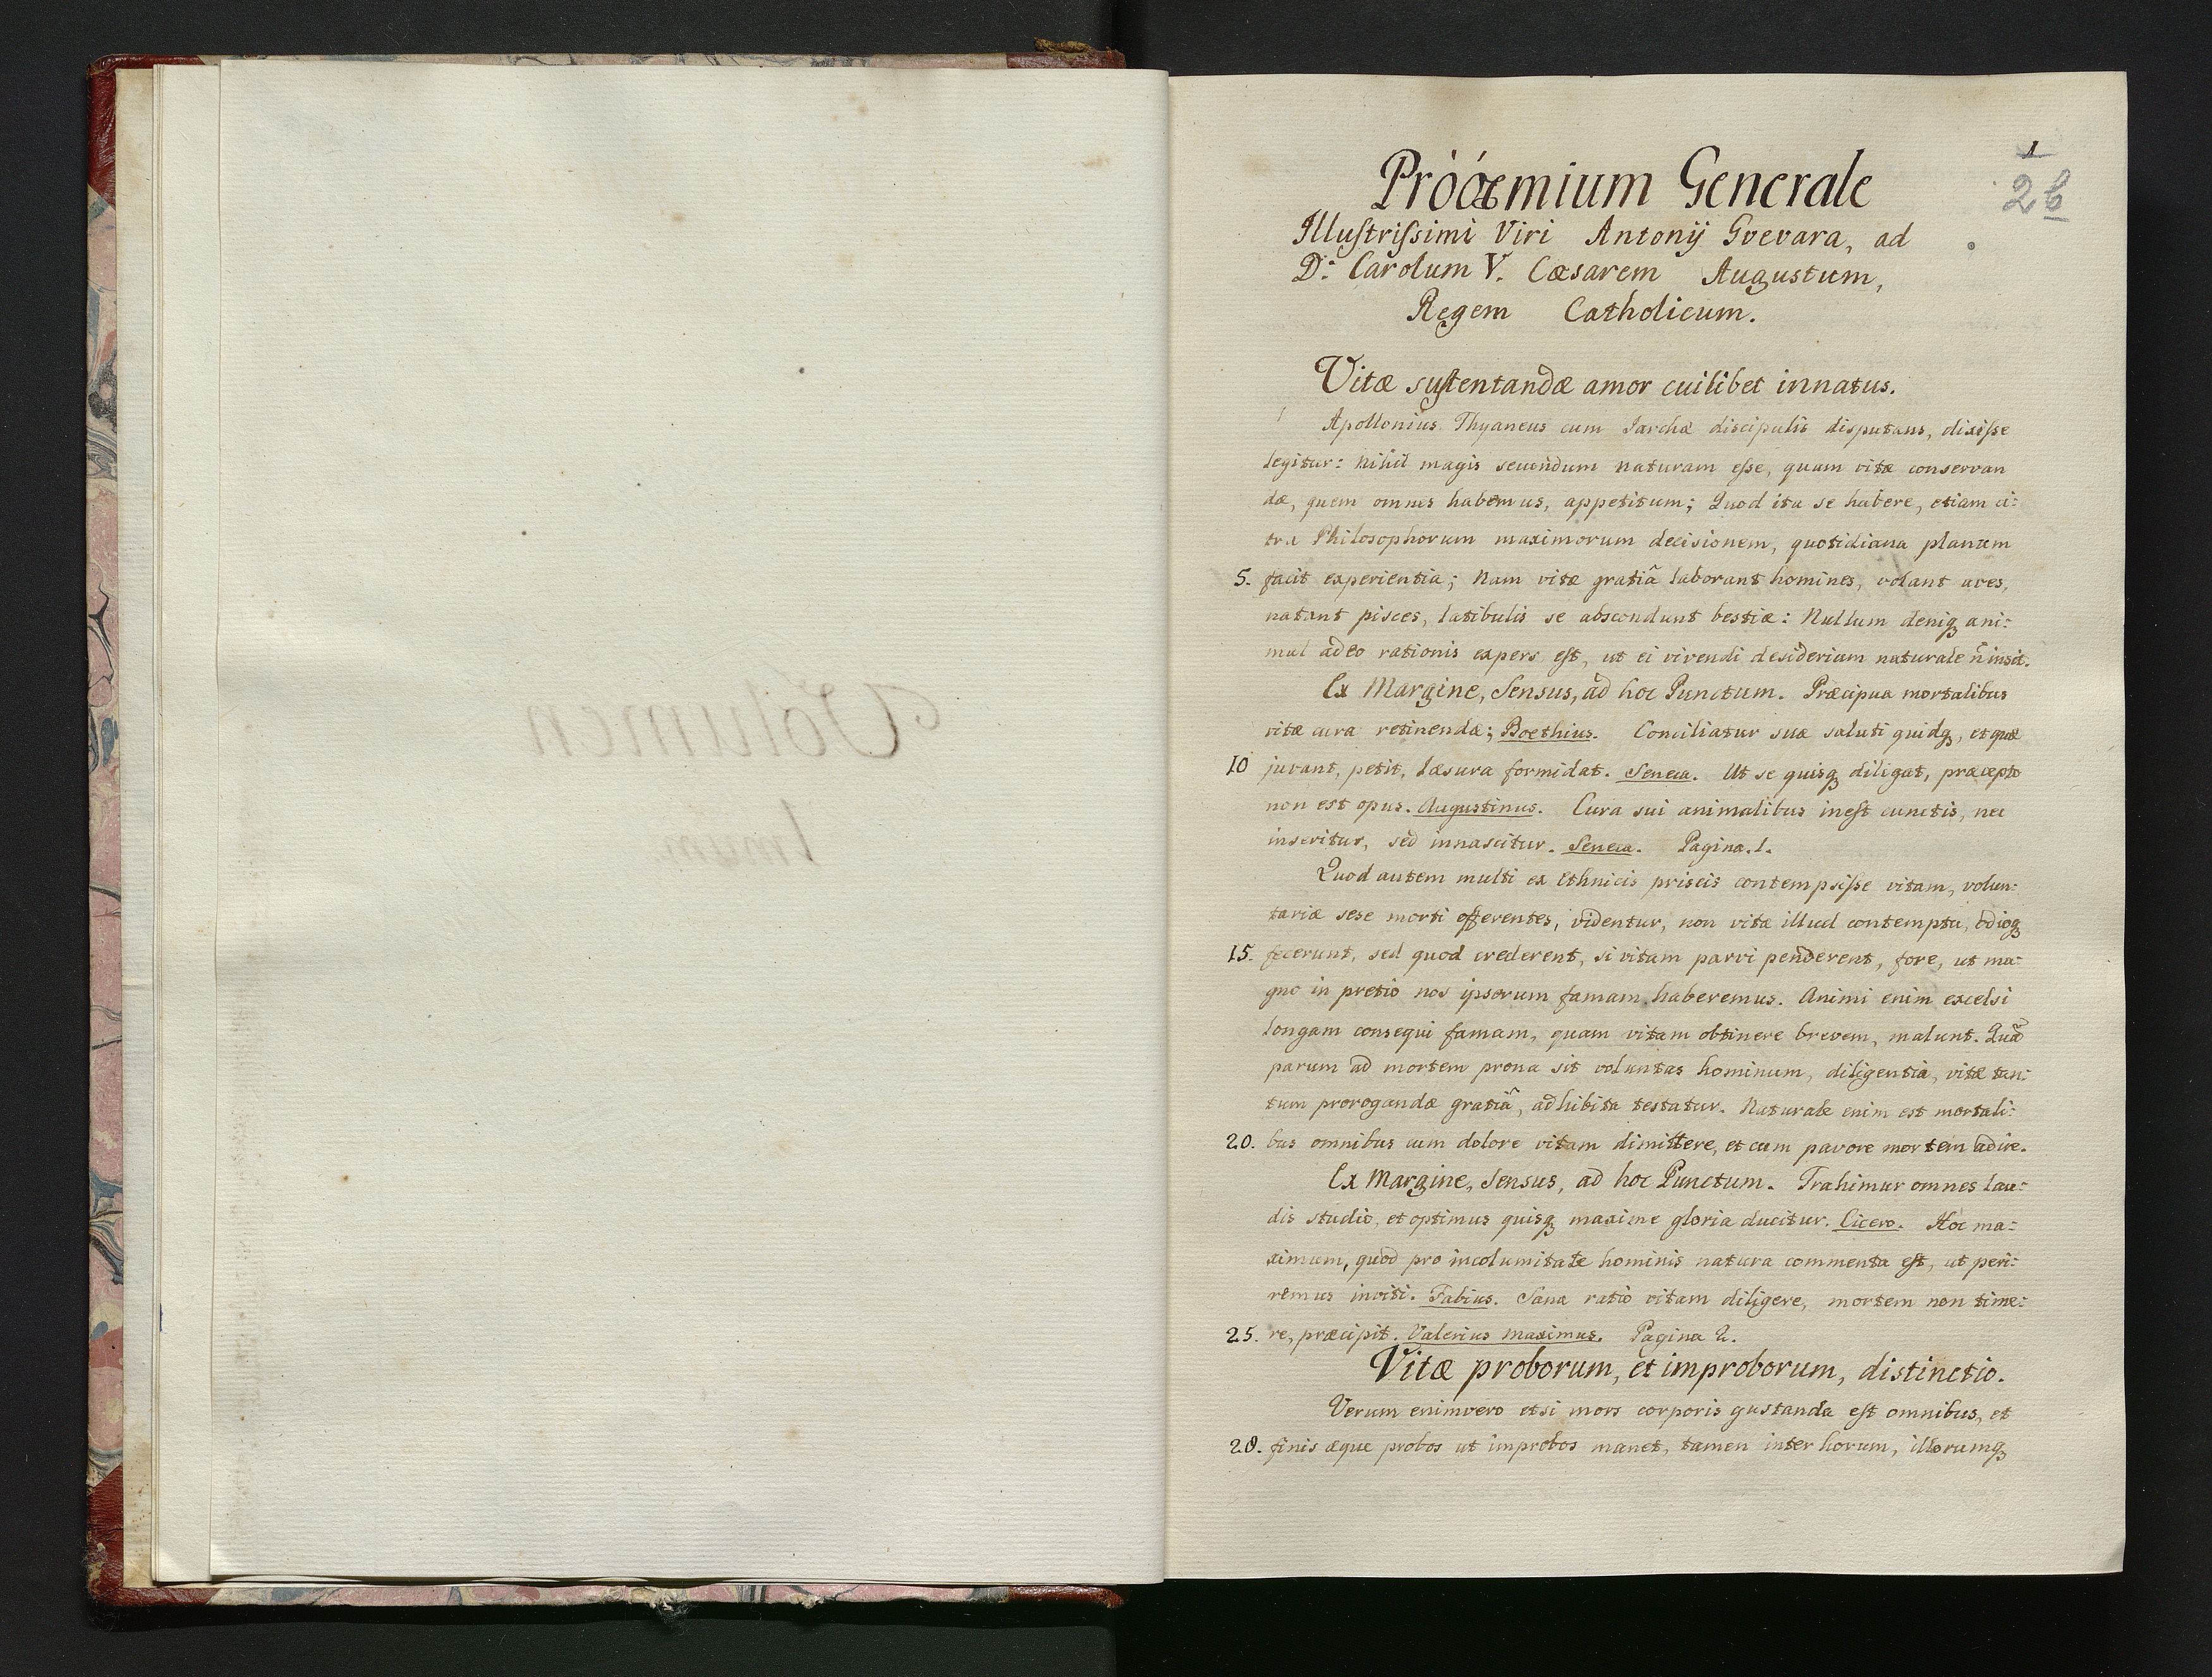 Volumen
1mum
1
2b
Proœmium Generale
Illustrissimi Viri Antonij Gvevara, ad
D: Carolum V. Cæsarem Augustum,
Regem Catholicum.
Vitæ sustentandæ amor cuilibet innatus.
1 Apollonius Thyaneus cum Jarchæ discipulis disputans, dixisse
legitur: Nihil magis secundum naturam esse, quam vitæ conservan
dæ, quem omnes habemus, appetitum; Quod ita se habere, etiam ci:
tra Philosophorum maximorum decisionem, quotidiana planum
5. facit experientia; Nam vitæ gratiâ laborant homines, volant aves,
natant pisces, latibulis se abscondunt bestiæ: Nullum deniq ani:
mal adeo rationis expers est, ut ei vivendi desiderium naturale ñ insit.
Ex Margine, Sensus, ad hoc Punctum. Præcipua mortalibus
vitæ cura retinendæ; Boethius. Conciliatur suæ saluti quidq, et quæ
10 juvant, petit, læsura formidat. Seneca. Ut se quisq diligat, præcepto
non est opus. Augustinus. Cura sui animalibus inest cunctis, nec
inseritur, sed innascitur. Seneca. Pagina. 1.
Quod autem multi ex Ethnicis priscis contempsisse vitam, volun:
tariæ sese morti offerentes, videntur, non vitæ illud contemptu, odioq
15. fecerunt, sed quod crederent, si vitam parvi penderent, fore, ut ma:
gno in pretio nos ipsorum famam haberemus. Animi enim excelsi
longam consequi famam, quam vitam obtinere brevem, malunt. Quã
parum ad mortem prona sit voluntas hominum, diligentia, vitæ tan:
tum prorogandæ gratiâ, adhibita testatur. Naturale enim est mortali:
20. bus omnibus cum dolore vitam dimittere, et cum pavore mortem adire.
Ex Margine, Sensus, ad hoc Punctum. Trahimur omnes lau:
dis studio, et optimus quisq maxime gloria ducitur. Cicero. Hoc ma:
ximum, quod pro incolumitate hominis natura commenta est, ut peri:
remus inviti. Fabius. Sana ratio vitam diligere, mortem non time:
25. re, præcipit. Valerius maximus. Pagina 2.
Vitæ proborum, et improborum, distinctio.
Verum enimvero etsi mors corporis gustanda est omnibus, et
28. finis æque probos ut improbos manet, tamen inter horum, illorumq